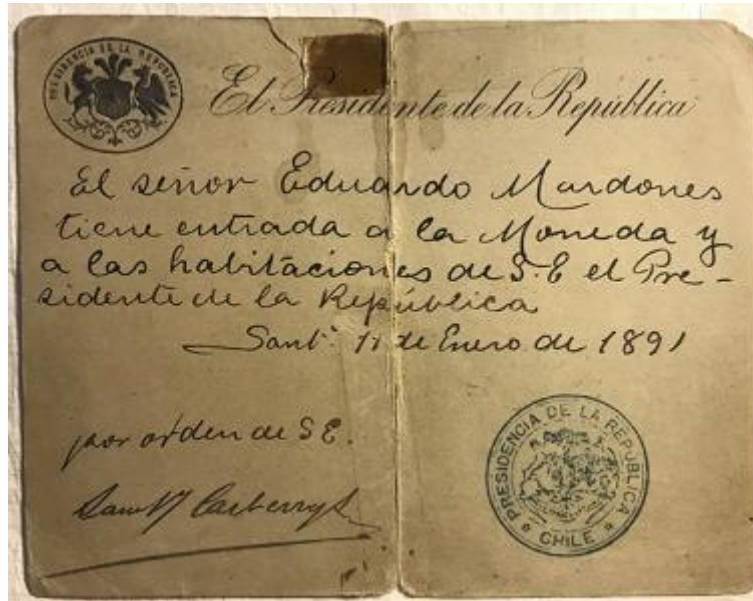 PRESIDENCIA DE LA REPUBLICA
El Presidente de la República
El señor Eduardo Mardones
tiene entrada a la Moneda y
a las habitaciones de S.E el Pre-
sidente de la República
Sant. 11 de Enero de 1891
por orden de S E.
PRESIDENCIA DE LA REPUBLICA
CHILE